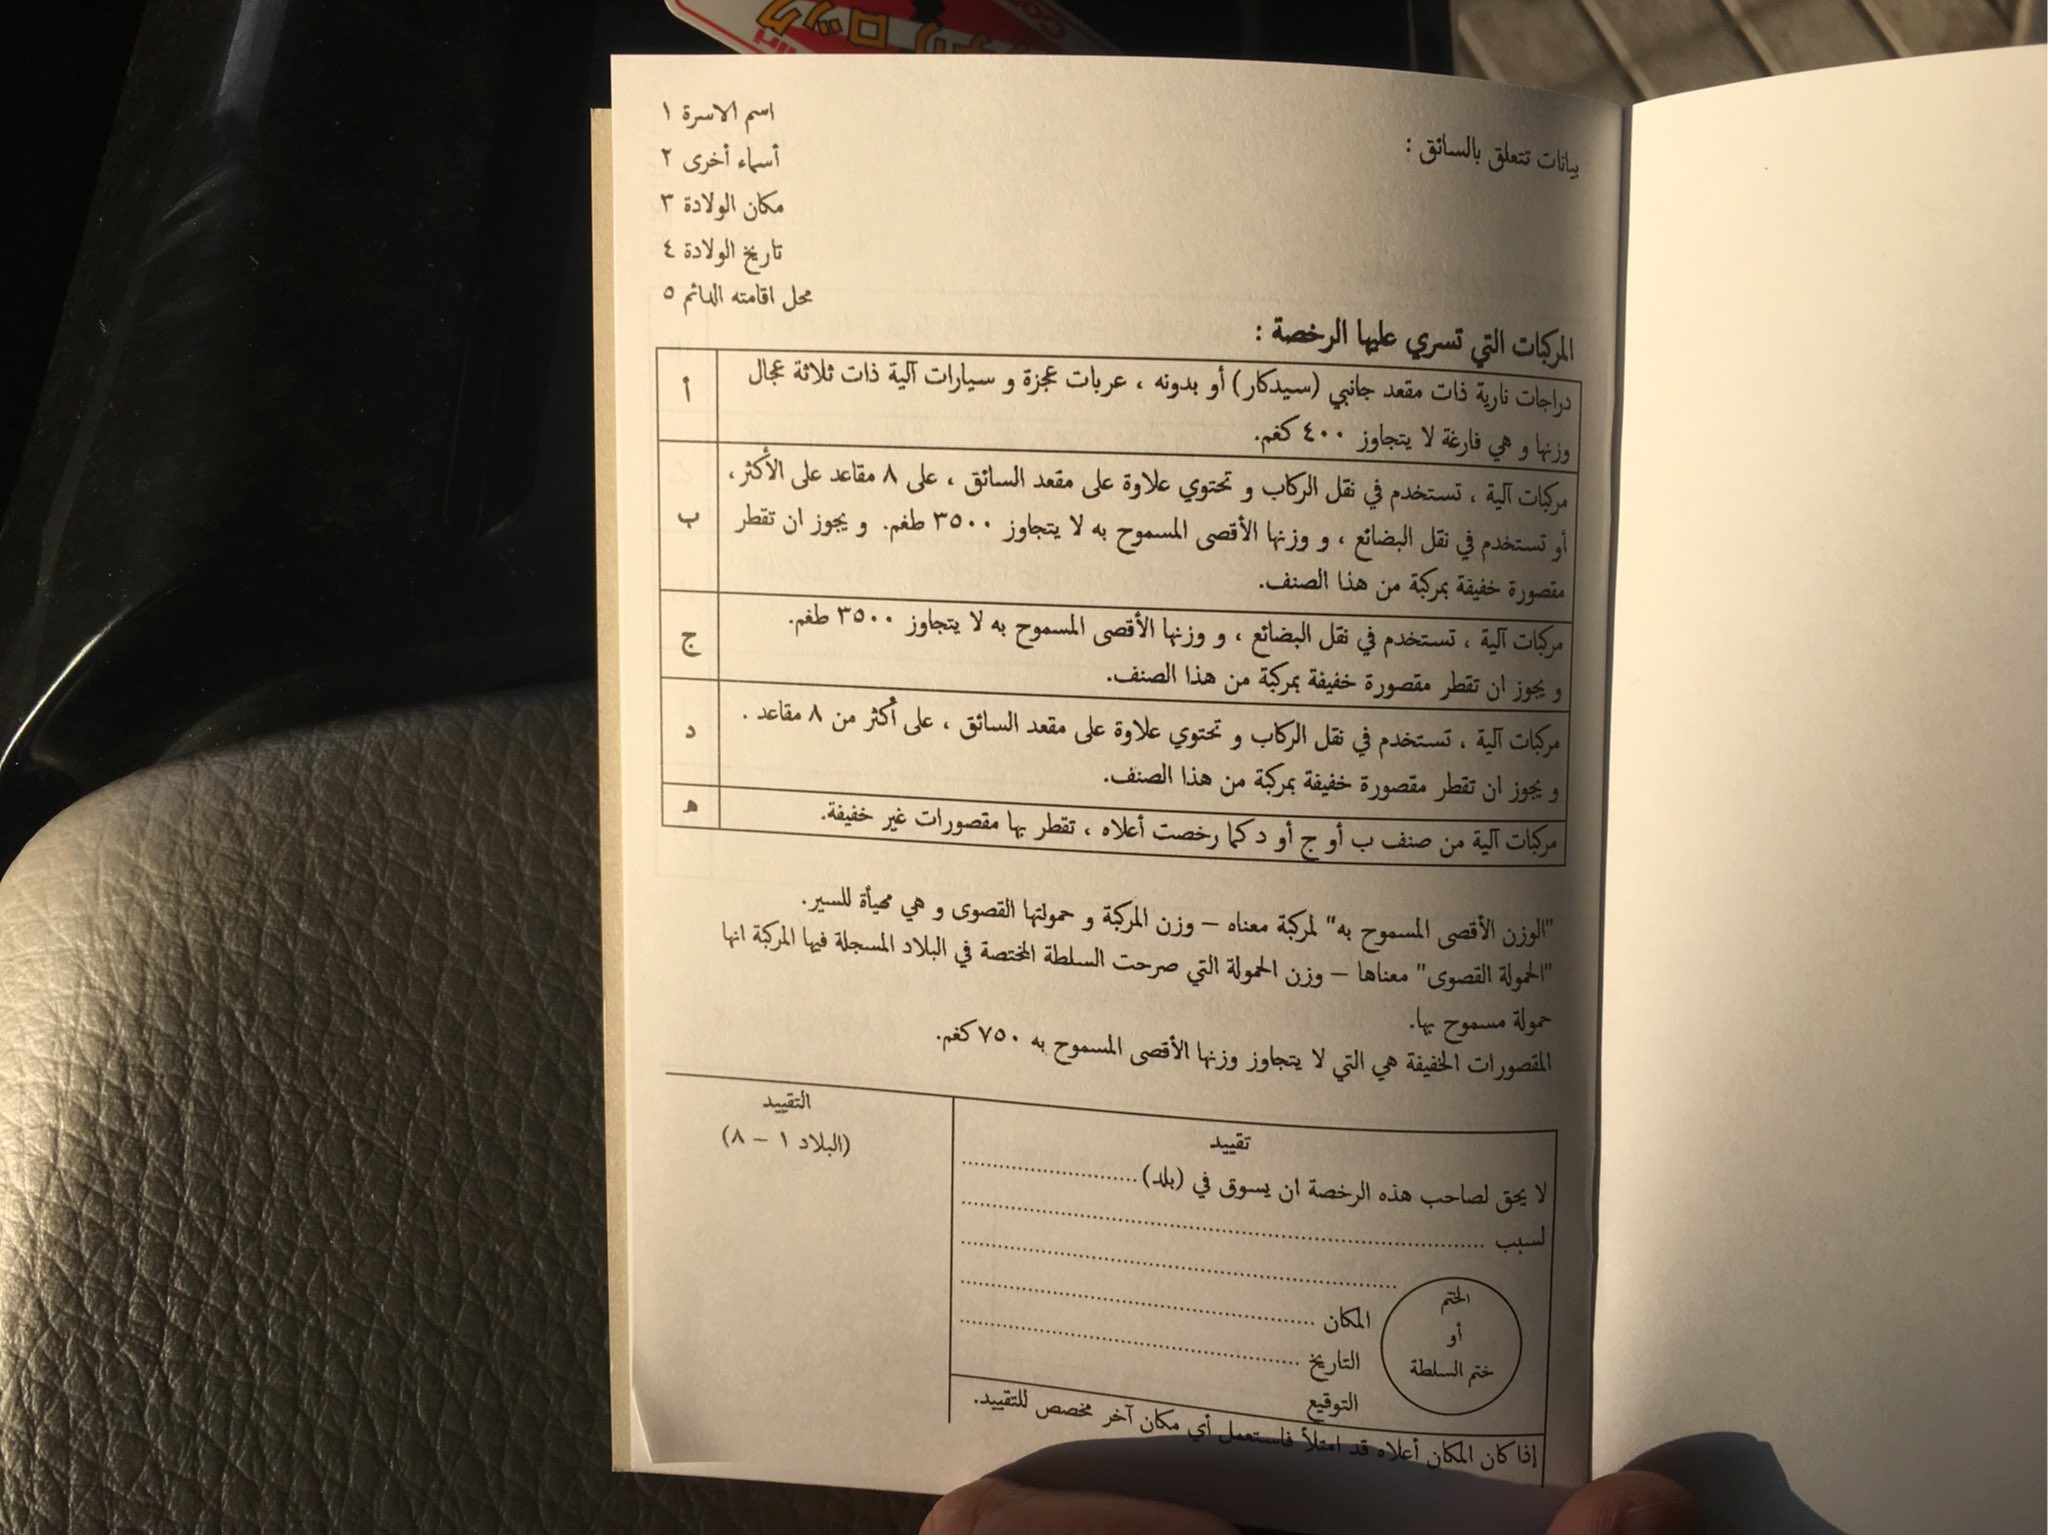 بيانات تتعلق بالسائق :
اسم الاسرة ١
أسماء أخرى ٢
مكان الولادة ٣
تاريخ الولادة ٤
محل اقامته الدائم ٥
المركبات التي تسري عليها الرخصة :
دراجات نارية ذات مقعد جانبي (سيدكار) أو بدونه ، عربات عجزة و سيارات آلية ذات ثلاثة عجال
وزنها و هي فارغة لا يتجاوز ٤٠٠ كغم.
أ
مركبات آلية ، تستخدم في نقل الركاب و تحتوي علاوة على مقعد السائق ، على ٨ مقاعد على الأكثر ،
أو تستخدم في نقل البضائع ، و وزنها الأقصى المسموح به لا يتجاوز ٣٥٠٠ طغم. و يجوز ان تقطر
مقصورة خفيفة بمركبة من هذا الصنف.
ب
مركبات آلية ، تستخدم في نقل البضائع ، و وزنها الأقصى المسموح به لا يتجاوز ٣٥٠٠ طغم.
و يجوز ان تقطر مقصورة خفيفة بمركبة من هذا الصنف.
ج
مركبات آلية ، تستخدم في نقل الركاب و تحتوي علاوة على مقعد السائق ، على أكثر من ٨ مقاعد .
و يجوز ان تقطر مقصورة خفيفة بمركبة من هذا الصنف.
د
مركبات آلية من صنف ب أو ج أو د كما رخصت أعلاه ، تقطر بها مقصورات غير خفيفة.
ه
"الوزن الأقصى المسموح به" لمركبة معناه – وزن المركبة و حمولتها القصوى و هي مهيأة للسير.
"الحمولة القصوى" معناها – وزن الحمولة التي صرحت السلطة المختصة في البلاد المسجلة فيها المركبة انها
حمولة مسموح بها.
المقصورات الخفيفة هي التي لا يتجاوز وزنها الأقصى المسموح به ٧٥٠ كغم.
تقييد
لا يحق لصاحب هذه الرخصة ان يسوق في (بلد) ........................
لسبب ........................
المكان ........................
التاريخ ........................
التوقيع
الختم
أو
ختم السلطة
التقييد
(البلاد ١ – ٨)
إذا كان المكان أعلاه قد امتلأ فاستعمل أي مكان آخر مخصص للتقييد.